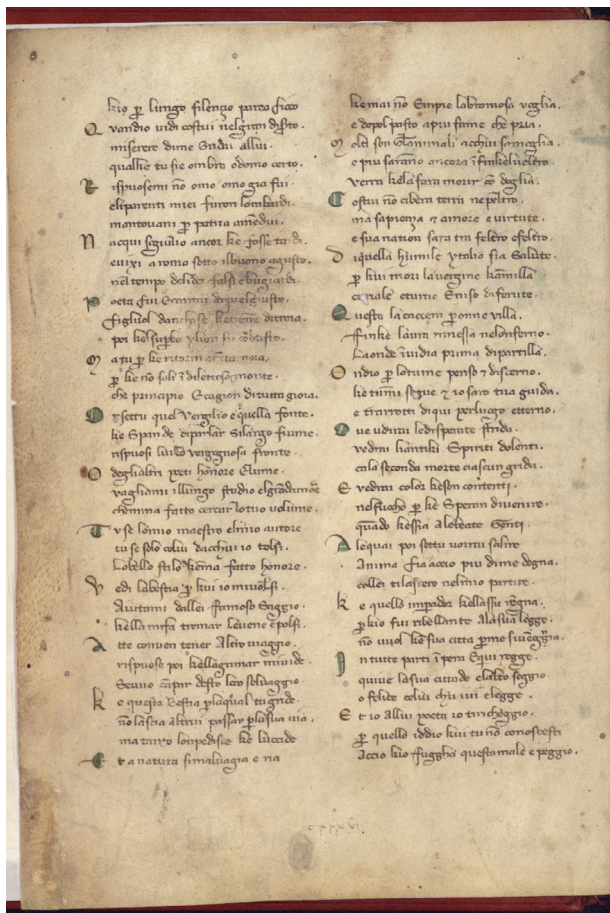 kio per lungo silenzio parea fioco
Quandio vidi costui nelgran diserto
miserere dime Gridai allui
qualke tu sie ombra odomo certo.
Rispuosemi no omo omo gia fui
eliparenti miei furon lombardi
mantovani per patria amedui.
Nacqui sub iulio ancor ke fosse tardi
evixi a roma sotto ilbuono agusto.
nel tempo delidei falsi ebugiardi.
Poeta fui Ecantai diquelgiusto.
figliuol danchise kevenne ditroia.
poi kel superbo ylion fu combusto.
Ma tu per ke ritorni atanta noia.
per ke no sali il dilectoso monte.
che principio Ecagion di tutta gioia.
Or settu quel Vergilio e quella fonte.
ke Spande diparlar Silargo fiume.
rispuosi lui con vergognosa fronte.
O deglialtri poeti honore Elume.
vagliami illungo studio elgrandamore
chemma fatto cercar lotuo volume.
Tu se lomio maestro elmio autore
tu se solo colui dacchui io tolsi.
Lobello stilo kemma fatto honore.
Vedi labestia per kui io mivolsi.
Aiutami dallei famoso Saggio.
kella mi fa tremar levene epolsi.
Atte convien tener Altro viaggio.
rispuose poi kellagrimar mi vide.
Sevuo campar desto loco selvaggio.
Ke questa bestia perlaqual tu gride.
no lascia altrui passar perlasua via.
ma tanto lonpedisce ke luccide
Et a natura simalvagia e ria
kemai no Empie labramosa voglia.
e dopol pasto a piu fame che pria.
Molti son Glianimali acchui samoglia.
e piu saranno ancora infinkelveltro.
verra kelafara morir con doglia.
Costui no cibera terra nepeltro.
ma sapienza et amore e virtute.
e sua nation sara tra feltro efeltro.
Diquella humile ytalia fia Salute.
per kui mori la vergine kammilla
euriale eturno Eniso diferute.
Questo la caccera per omne villa.
finke lavra rimessa nelonferno.
Laonde invidia prima dipartilla.
Ondio per lotume penso et discerno.
ke tumi segue et io saro tua guida.
e trarrotti diqui perluogo etterno.
Ove udirai ledisperate strida.
vedrai liantiki Spiriti dolenti.
cala seconda morte ciascun grida.
E vedrai color keson contenti.
nelfuocho per ke Speran divenire.
quado kessia alebeate Genti.
Alequai poi settu vorrai salire
Anima fia accio piu dime degna.
collei tilascero nelmio partire.
Ke quello imperador kellassu regna.
per kio fui ribellante Alasua legge.
no vuol ke sua citta perme sivegna.
In tutte parti impera Equi regge.
quivi lasua cittade elalto seggio
o felice colui chu ivi elegge.
Et io allui poeta io tiricheggio.
per quello iddio kui tu no conoscesti
accio kio fuggha questo male e peggio.